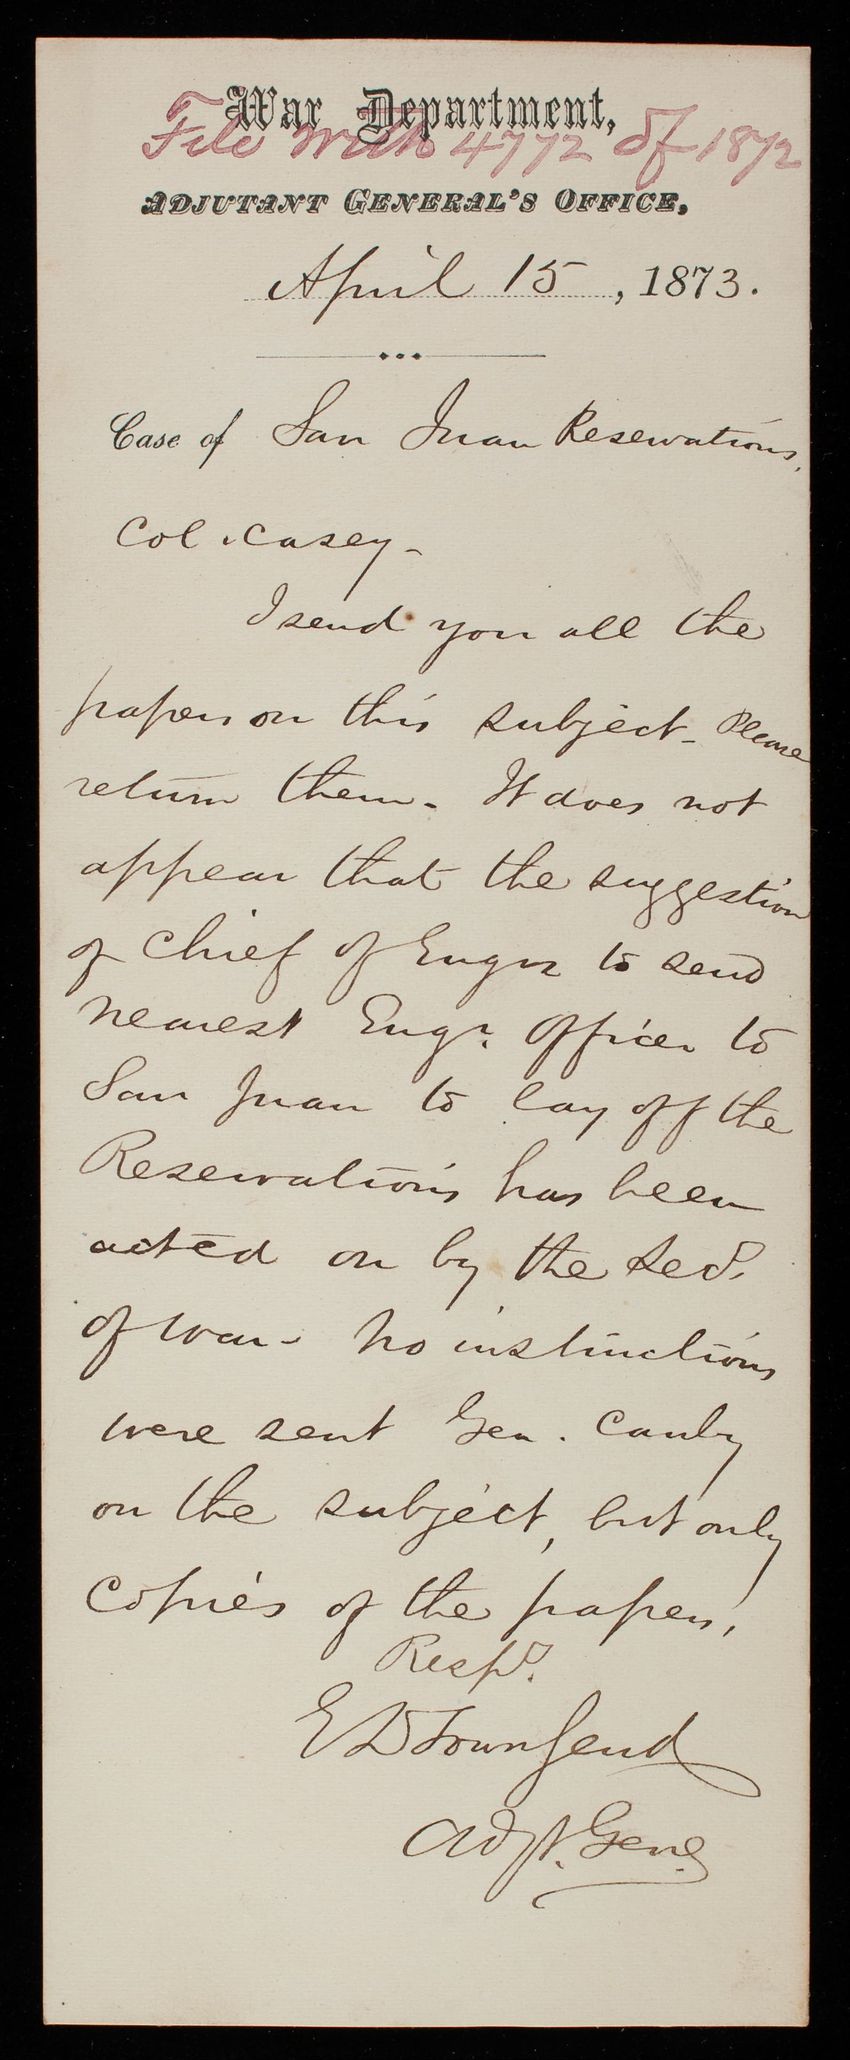 War Department,
File with 4772 of 1872
ADJUTANT GENERAL'S OFFICE,
April 15, 1873.
Case of San Juan Reservations,
Col. Casey-
I send you all the
papers on this subject- Please
return them- It does not
appear that the suggestion
of Chief of Engrs to send
nearest Engr. Officer to
San Juan to lay off the
Reservations has been
acted on by the Secy.
of War- No instructions
were sent Gen. Canby
on the subject, but only
copies of the papers,
Respy.
E D Townsend
Adjt. Genl.